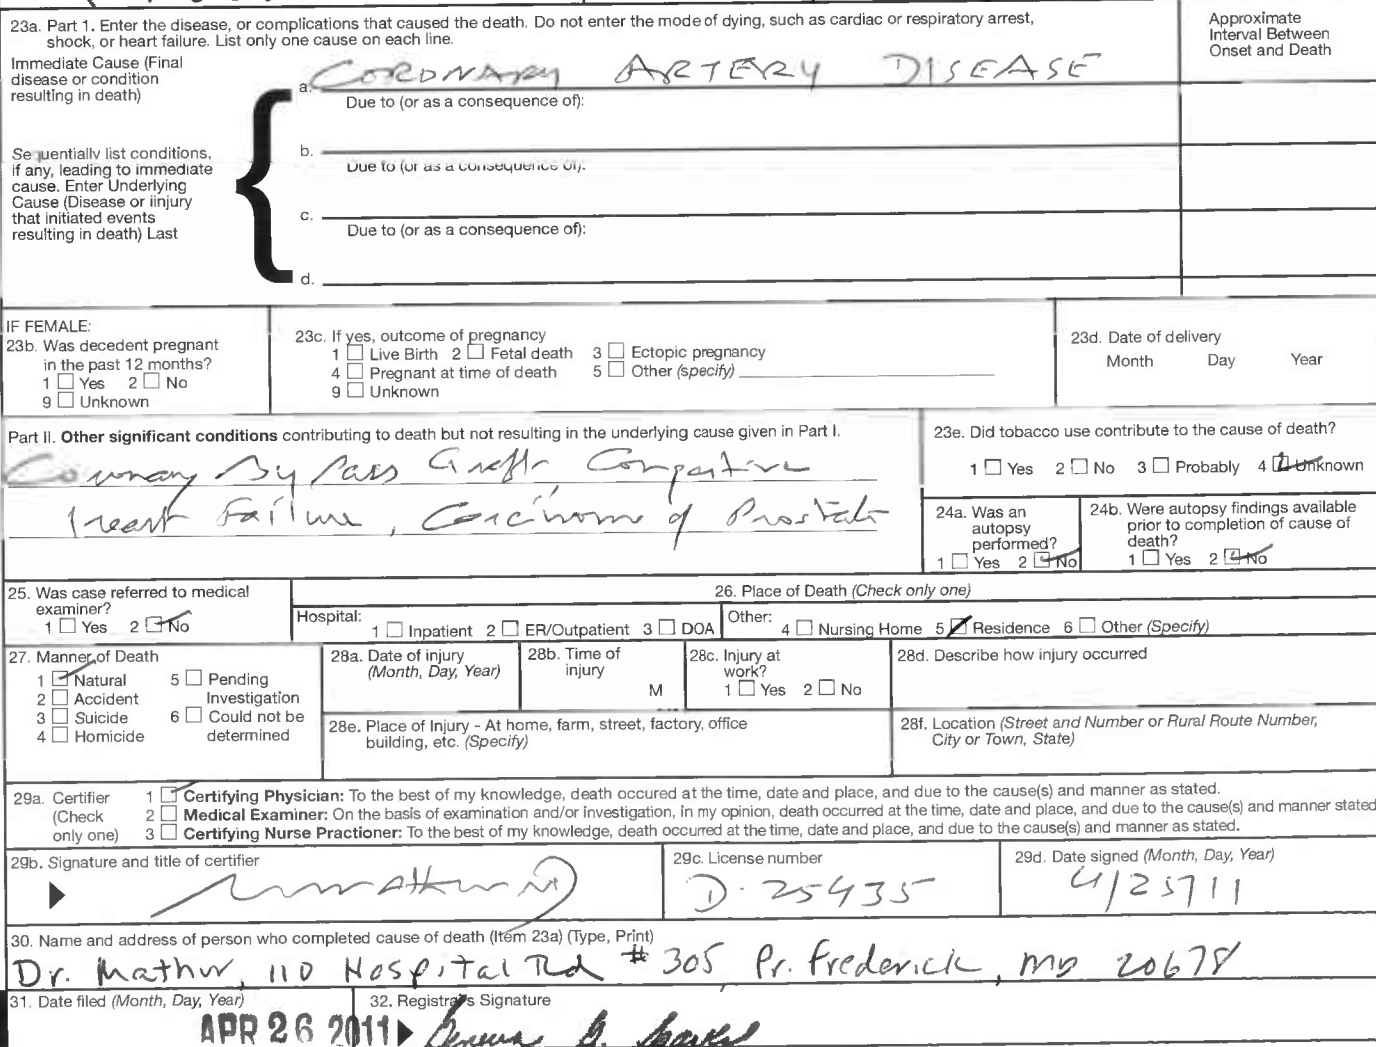 23a. Part 1. Enter the disease, or complications that caused the death. Do not enter the mode of dying, such as cardiac or respiratory arrest,
shock, or heart failure. List only one cause on each line.
Approximate
Interval Between
Onset and Death
Immediate Cause (Final
disease or condition
resulting in death)
a. CORONARY ARTERY DISEASE
Due to (or as a consequence of):
Sequentially list conditions,
if any, leading to immediate
cause. Enter Underlying
Cause (Disease or iinjury
that initiated events
resulting in death) Last
b.
Due to (or as a consequence of):
c.
Due to (or as a consequence of):
d.
IF FEMALE:
23b. Was decedent pregnant
in the past 12 months?
1 Yes 2 No
9 Unknown
23c. If yes, outcome of pregnancy
1 Live Birth 2 Fetal death 3 Ectopic pregnancy
4 Pregnant at time of death 5 Other (specify)
9 Unknown
23d. Date of delivery
Month Day Year
Part II. Other significant conditions contributing to death but not resulting in the underlying cause given in Part I.
Coronary By Pass Graft, Congestive
Heart Failure, Carcinoma of Prostate
23e. Did tobacco use contribute to the cause of death?
1 Yes 2 No 3 Probably 4 Unknown
24a. Was an
autopsy
performed?
1 Yes 2 No
24b. Were autopsy findings available
prior to completion of cause of
death?
1 Yes 2 No
25. Was case referred to medical
examiner?
1 Yes 2 No
26. Place of Death (Check only one)
Hospital: 1 Inpatient 2 ER/Outpatient 3 DOA Other: 4 Nursing Home 5 Residence 6 Other (Specify)
27. Manner of Death
1 Natural 5 Pending
2 Accident Investigation
3 Suicide 6 Could not be
4 Homicide determined
28a. Date of injury
(Month, Day, Year)
28b. Time of
injury
M
28c. Injury at
work?
1 Yes 2 No
28d. Describe how injury occurred
28e. Place of Injury - At home, farm, street, factory, office
building, etc. (Specify)
28f. Location (Street and Number or Rural Route Number,
City or Town, State)
29a. Certifier
(Check
only one)
1 Certifying Physician: To the best of my knowledge, death occured at the time, date and place, and due to the cause(s) and manner as stated.
2 Medical Examiner: On the basis of examination and/or investigation, in my opinion, death occurred at the time, date and place, and due to the cause(s) and manner stated
3 Certifying Nurse Practioner: To the best of my knowledge, death occurred at the time, date and place, and due to the cause(s) and manner as stated.
29b. Signature and title of certifier
29c. License number
D. 25435
29d. Date signed (Month, Day, Year)
4/25/11
30. Name and address of person who completed cause of death (Item 23a) (Type, Print)
Dr. Mathur, 110 Hospital Rd # 305 Pr. Frederick, MD 20678
31. Date filed (Month, Day, Year)
APR 26 2011
32. Registrar's Signature